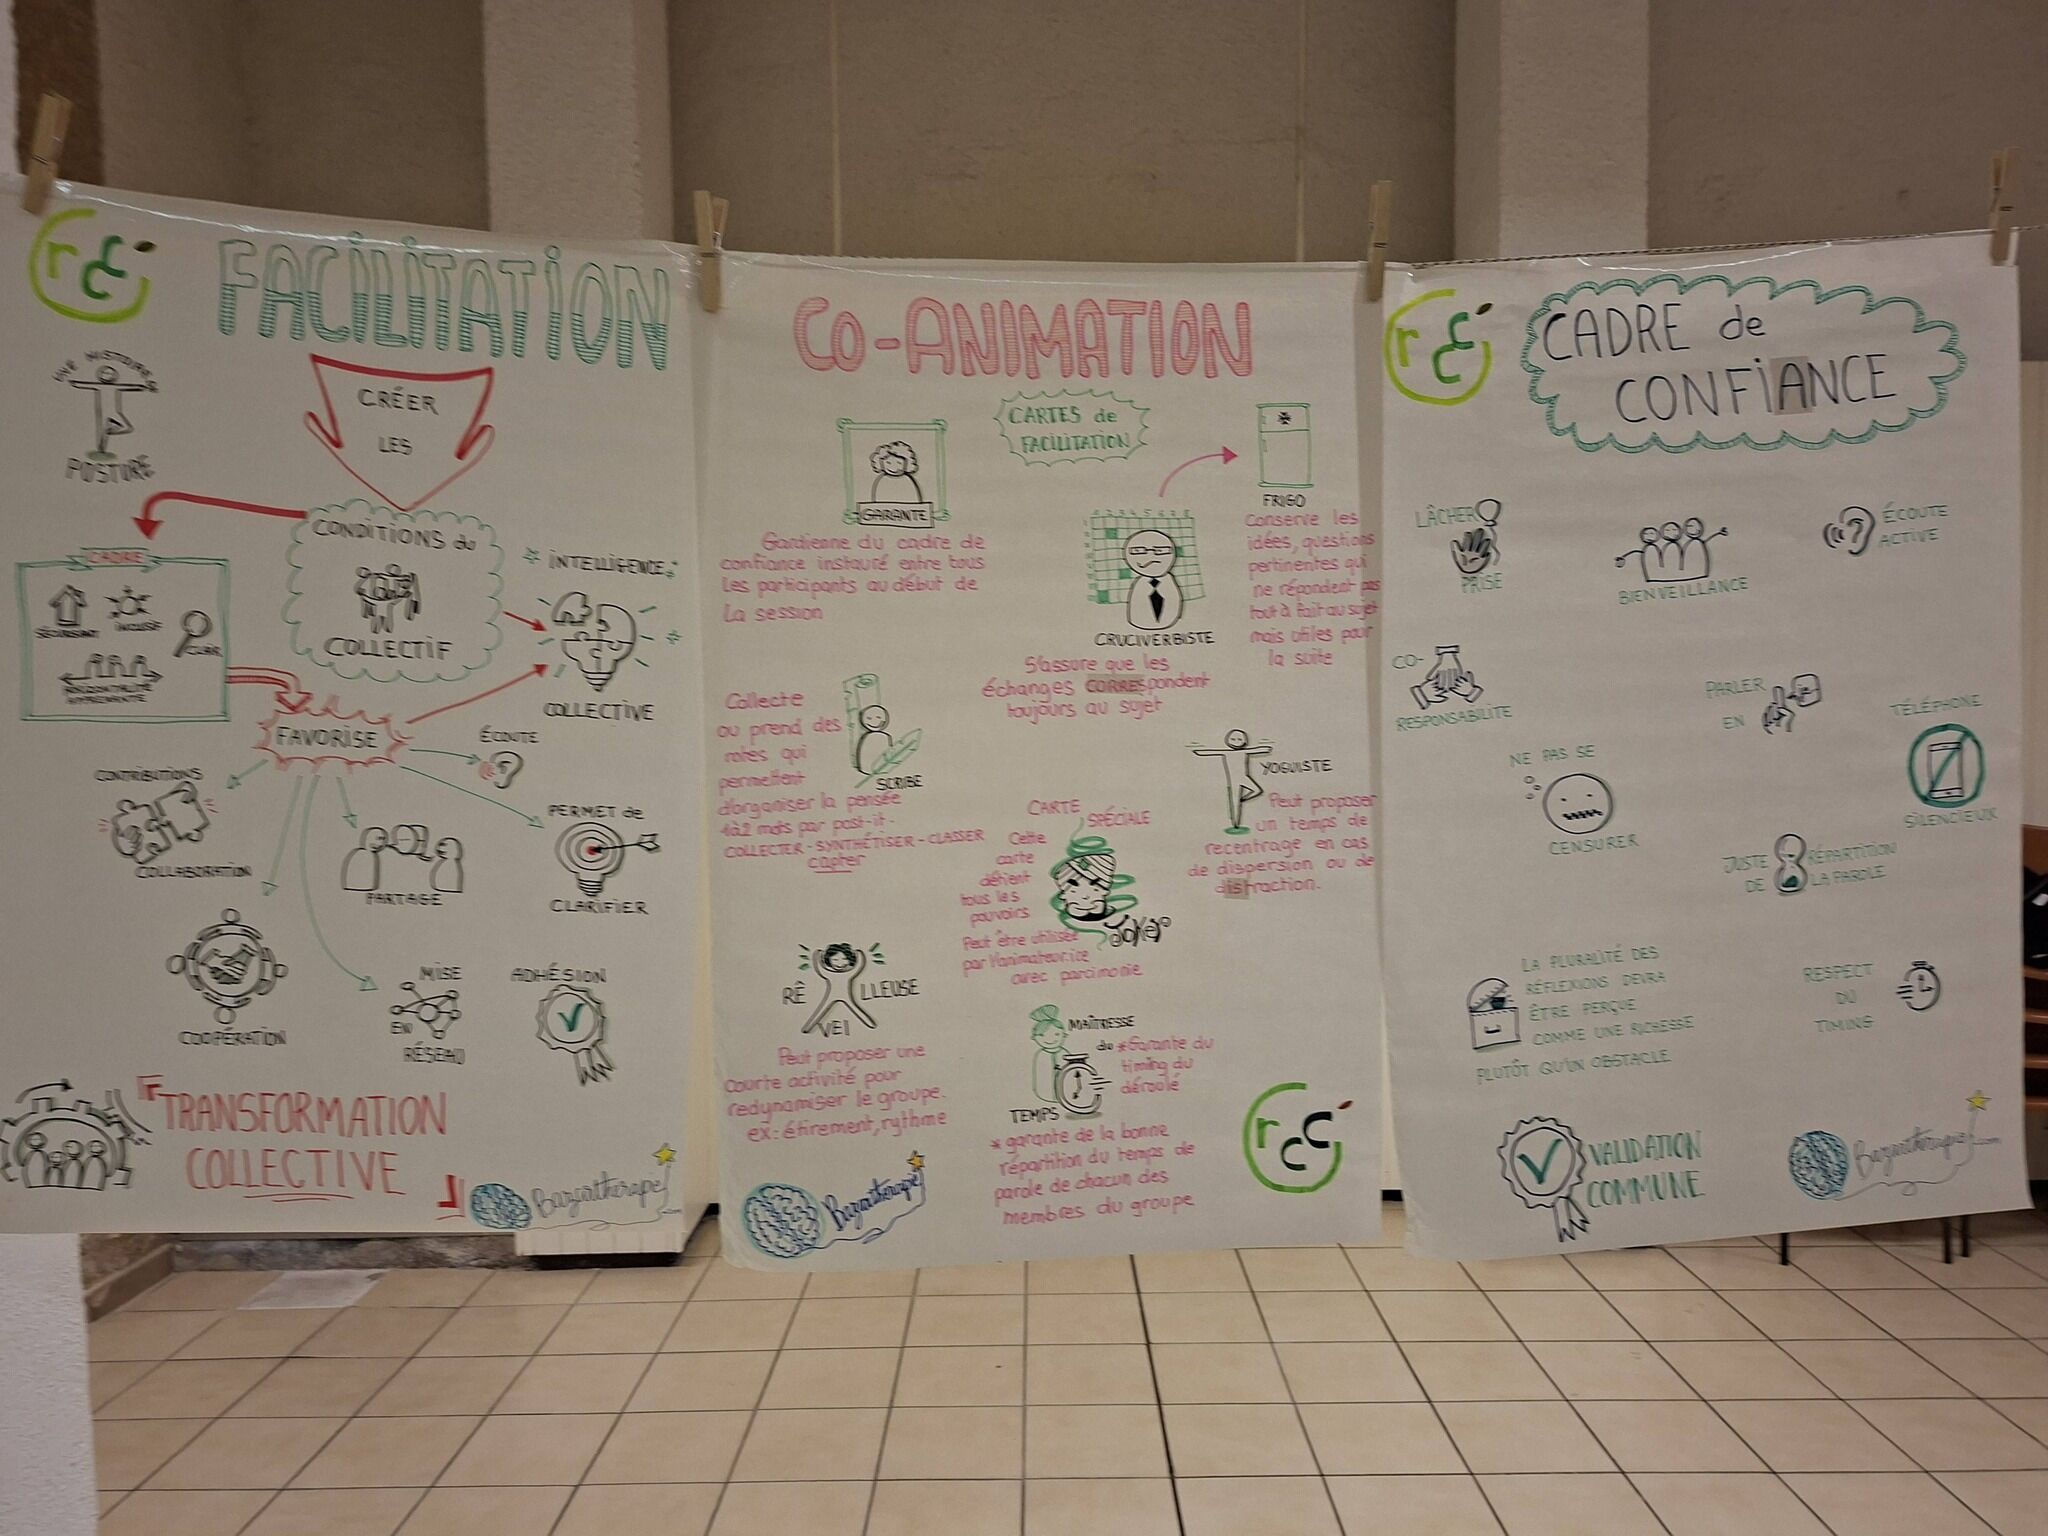 rcc
FACILITATION
UNE HISTOIRE de
POSTURE
CRÉER
LES
CONDITIONS du
COLLECTIF
CADRE
SÉCURISANT
INCLUSIF
CLAIR
INTELLIGENCE
COLLECTIVE
FAVORISE
ÉCOUTE
CONTRIBUTIONS
COLLABORATION
PARTAGE
PERMET de
CLARIFIER
COOPÉRATION
MISE
EN
RÉSEAU
ADHÉSION
TRANSFORMATION
COLLECTIVE
Bazartherapie
.com
CO-ANIMATION
CARTES de
FACILITATION
GARANTE
Gardienne du cadre de
confiance instauré entre tous
les participants au début de
la session
FRIGO
Conserve les
idées, questions
pertinentes qui
ne répondent pas
tout à fait au sujet
mais utiles pour
la suite
CRUCIVERBISTE
S'assure que les
échanges CORRESpondent
toujours au sujet
Collecte
ou prend des
notes qui
permettent
d'organiser la pensée
1à2 mots par post-it.
COLLECTER-SYNTHÉTISER-CLASSER
capter
SCRIBE
YOGUISTE
Peut proposer
un temps de
recentrage en cas
de dispersion ou de
distraction.
CARTE
SPÉCIALE
Cette
carte
détient
tous les
pouvoirs
JOKER
Peut être utilisée
par l'animateur.ice
avec parcimonie
RÊ
VEI
LLEUSE
Peut proposer une
courte activité pour
redynamiser le groupe.
ex: étirement, rythme
MAÎTRESSE
du
TEMPS
*Garante du
timing du
déroulé
*garante de la bonne
répartition du temps de
parole de chacun des
membres du groupe
Bazartherapie
rcc
rcc
CADRE de
CONFIANCE
LÂCHER
PRISE
BIENVEILLANCE
ÉCOUTE
ACTIVE
CO-
RESPONSABILITE
PARLER
EN
TÉLÉPHONE
SILENCIEUX
NE PAS SE
CENSURER
JUSTE RÉPARTITION
DE LA PAROLE
LA PLURALITÉ DES
RÉFLEXIONS DEVRA
ÊTRE PERÇUE
COMME UNE RICHESSE
PLUTÔT QU'UN OBSTACLE
RESPECT
DU
TIMING
VALIDATION
COMMUNE
Bazartherapie
.com